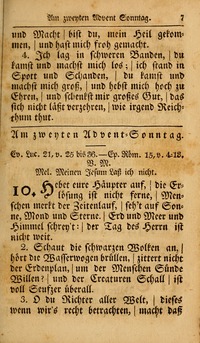 Am zweyten Advent Sonntag. 7
und Macht | bist du, mein Heil gekom-
men, und hast mich froh gemacht.
4. Ich lag in schweren Banden, | du
kamst und machst mich los; | ich stand in
Spott und Schanden, | du kamst und
machst mich groß, | und hebst mich hoch zu
Ehren, | und schenkst mir großes Gut, | das
sich nicht läßt verzehren, | wie irgend Reich-
thum thut.
Am zweyten Advent-Sonntag.
Ev. Luc. 21, v. 25 bis 36.—Ep. Röm. 15, v. 4-13,
V. M.
Mel. Meinen Jesum laß ich nicht.
10. Hebet eure Häupter auf, | die Er-
lösung ist nicht ferne, | Men-
schen merkt der Zeitenlauf, | seh't auf Son-
ne, Mond und Sterne: | Erd und Meer und
Himmel schrey't: | der Tag des Herrn ist
nicht weit.
2. Schaut die schwarzen Wolken an, |
hört die Wasserwogen brüllen, | zittert nicht
der Erdenplan, | um der Menschen Sünde
Willen? | und der Creaturen Schall | ist
voll Seufzer überall.
3. O du Richter aller Welt, | dieses
wenn wir's recht betrachten, | macht daß